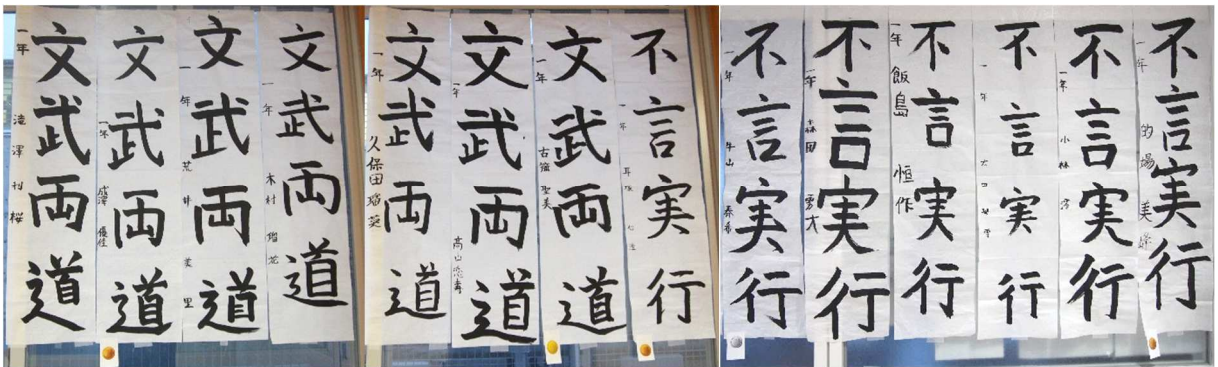 文武両道
一年
文武両道
一年
文武両道
一年 荒井 美里
文武両道
一年 木村
文武両道
一年 久保田
文武両道
一年 高山
文武両道
一年 聖美
不言実行
一年
不言実行
一年 牛山
不言実行
一年 森田
不言実行
一年 飯島 恒作
不言実行
一年
不言実行
一年 小林
不言実行
一年 的場 美